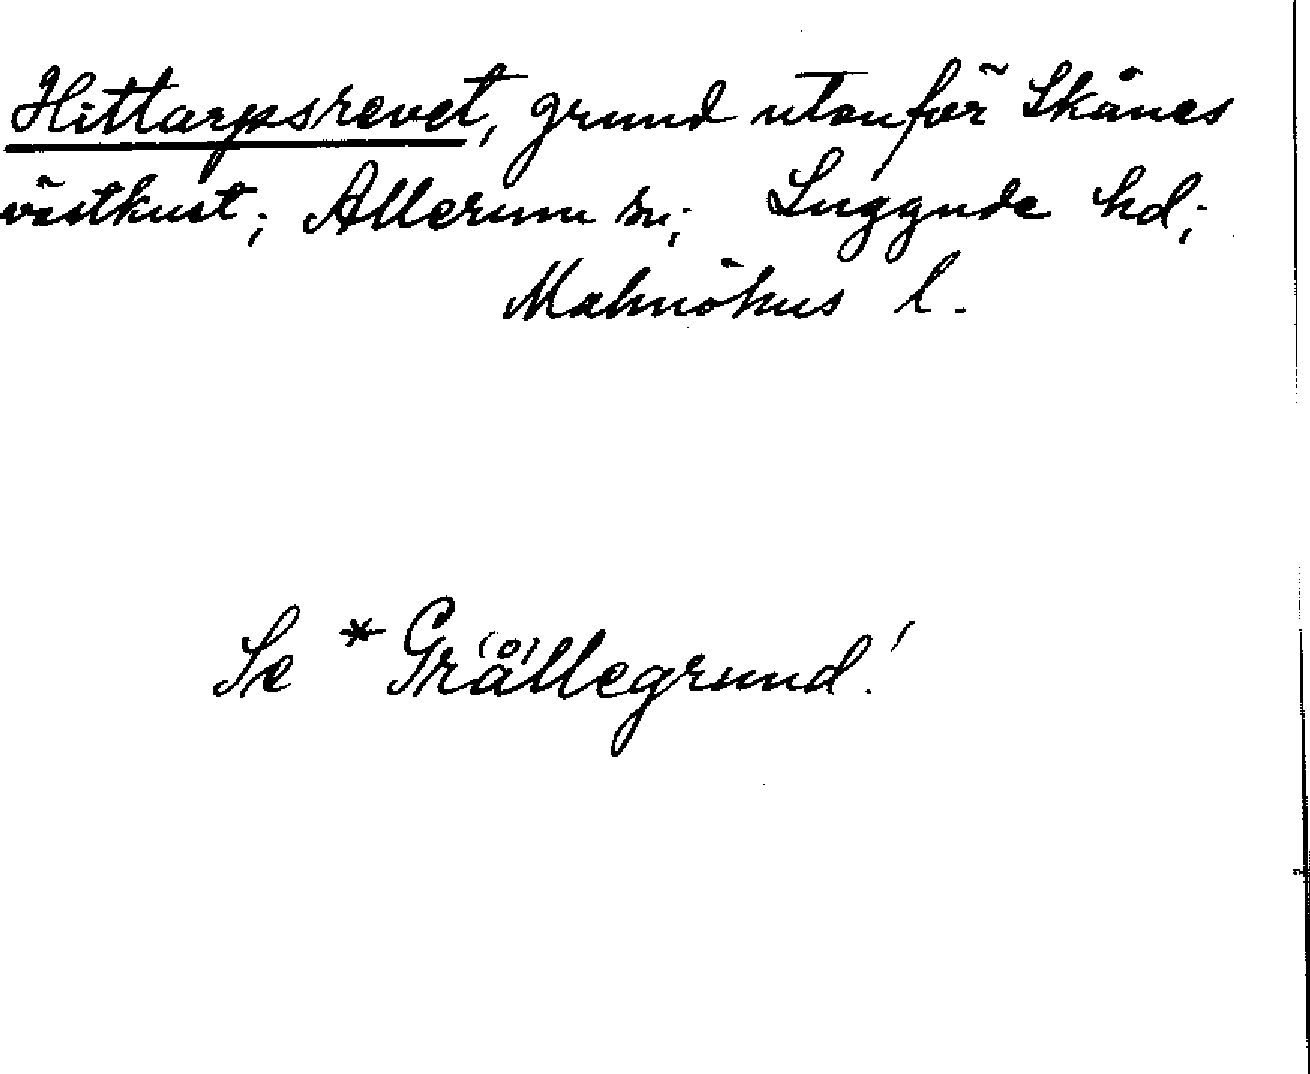 Hittarpsrevet, grund utanför Skånes
västkust; Allerum sn; Luggude hd;
Malmöhus l.
Se *Grä(å)llegrund!